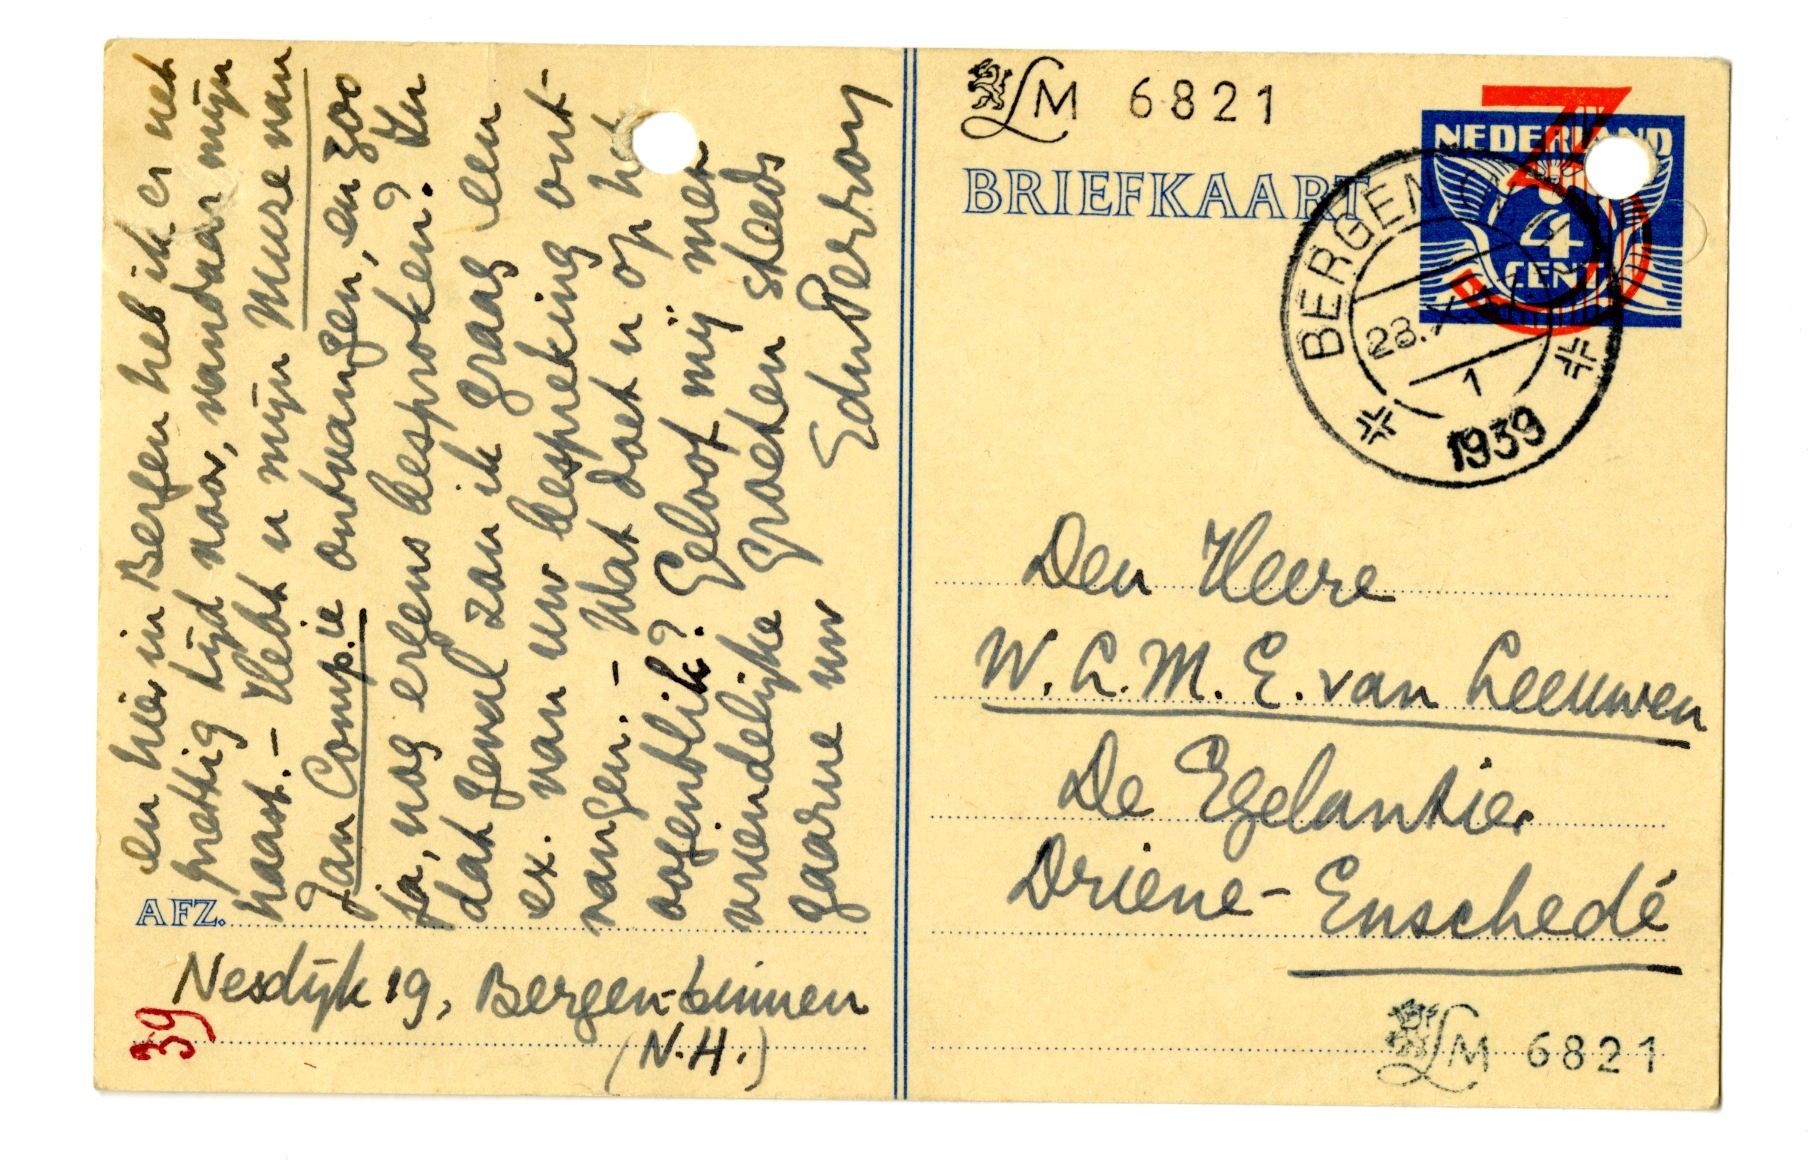 en hier in Bergen heb ik er net
prettig tijd voor, vandaar mijn
haast. – Hebt u mijn Muse van
Jan Comp.ie ontvangen, en zoo
ja, nog ergens besproken? In
dat geval zou ik graag een
ex. van uw bespreking ont-
vangen. – Wat doet u op het
oogenblik? Geloof mij met
vriendelijke groeten steeds
gaarne uw EduPerron
AFZ.
Nesdijk 19, Bergen-binnen
(N.H.)
39
LM 6821
BRIEFKAART
NEDERLAND
3
4
CENT
BERGEN
28.X
1
1939
Den Heere
W. L. M. E. van Leeuwen
De Egelantier
Driene – Enschedé
LM 6821